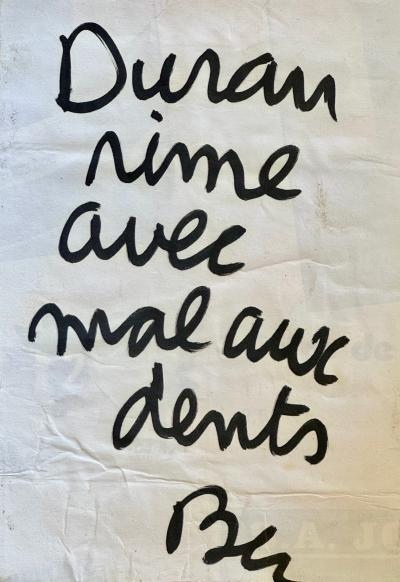 Duran
rime
avec
mal aux
dents
Ben